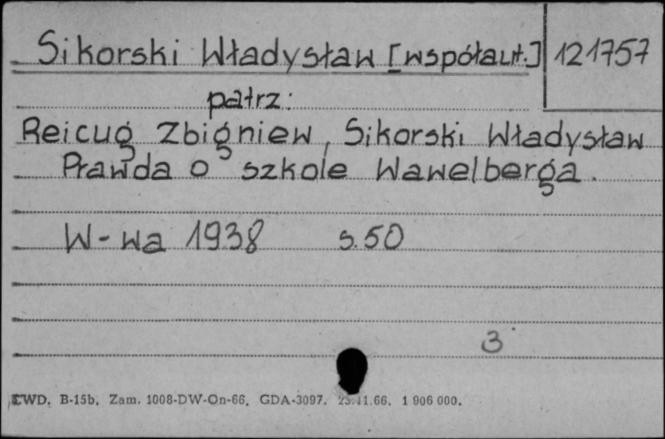 Sikorski Władysław [współaut.] 121757
patrz:
Reicug Zbigniew, Sikorski Władysław
Prawda o szkole Wawelberga.
W-wa 1938 s.50
3
EWD. B-15b. Zam. 1008-DW-On-66. GDA-3097. 23.11.66. 1 906 000.